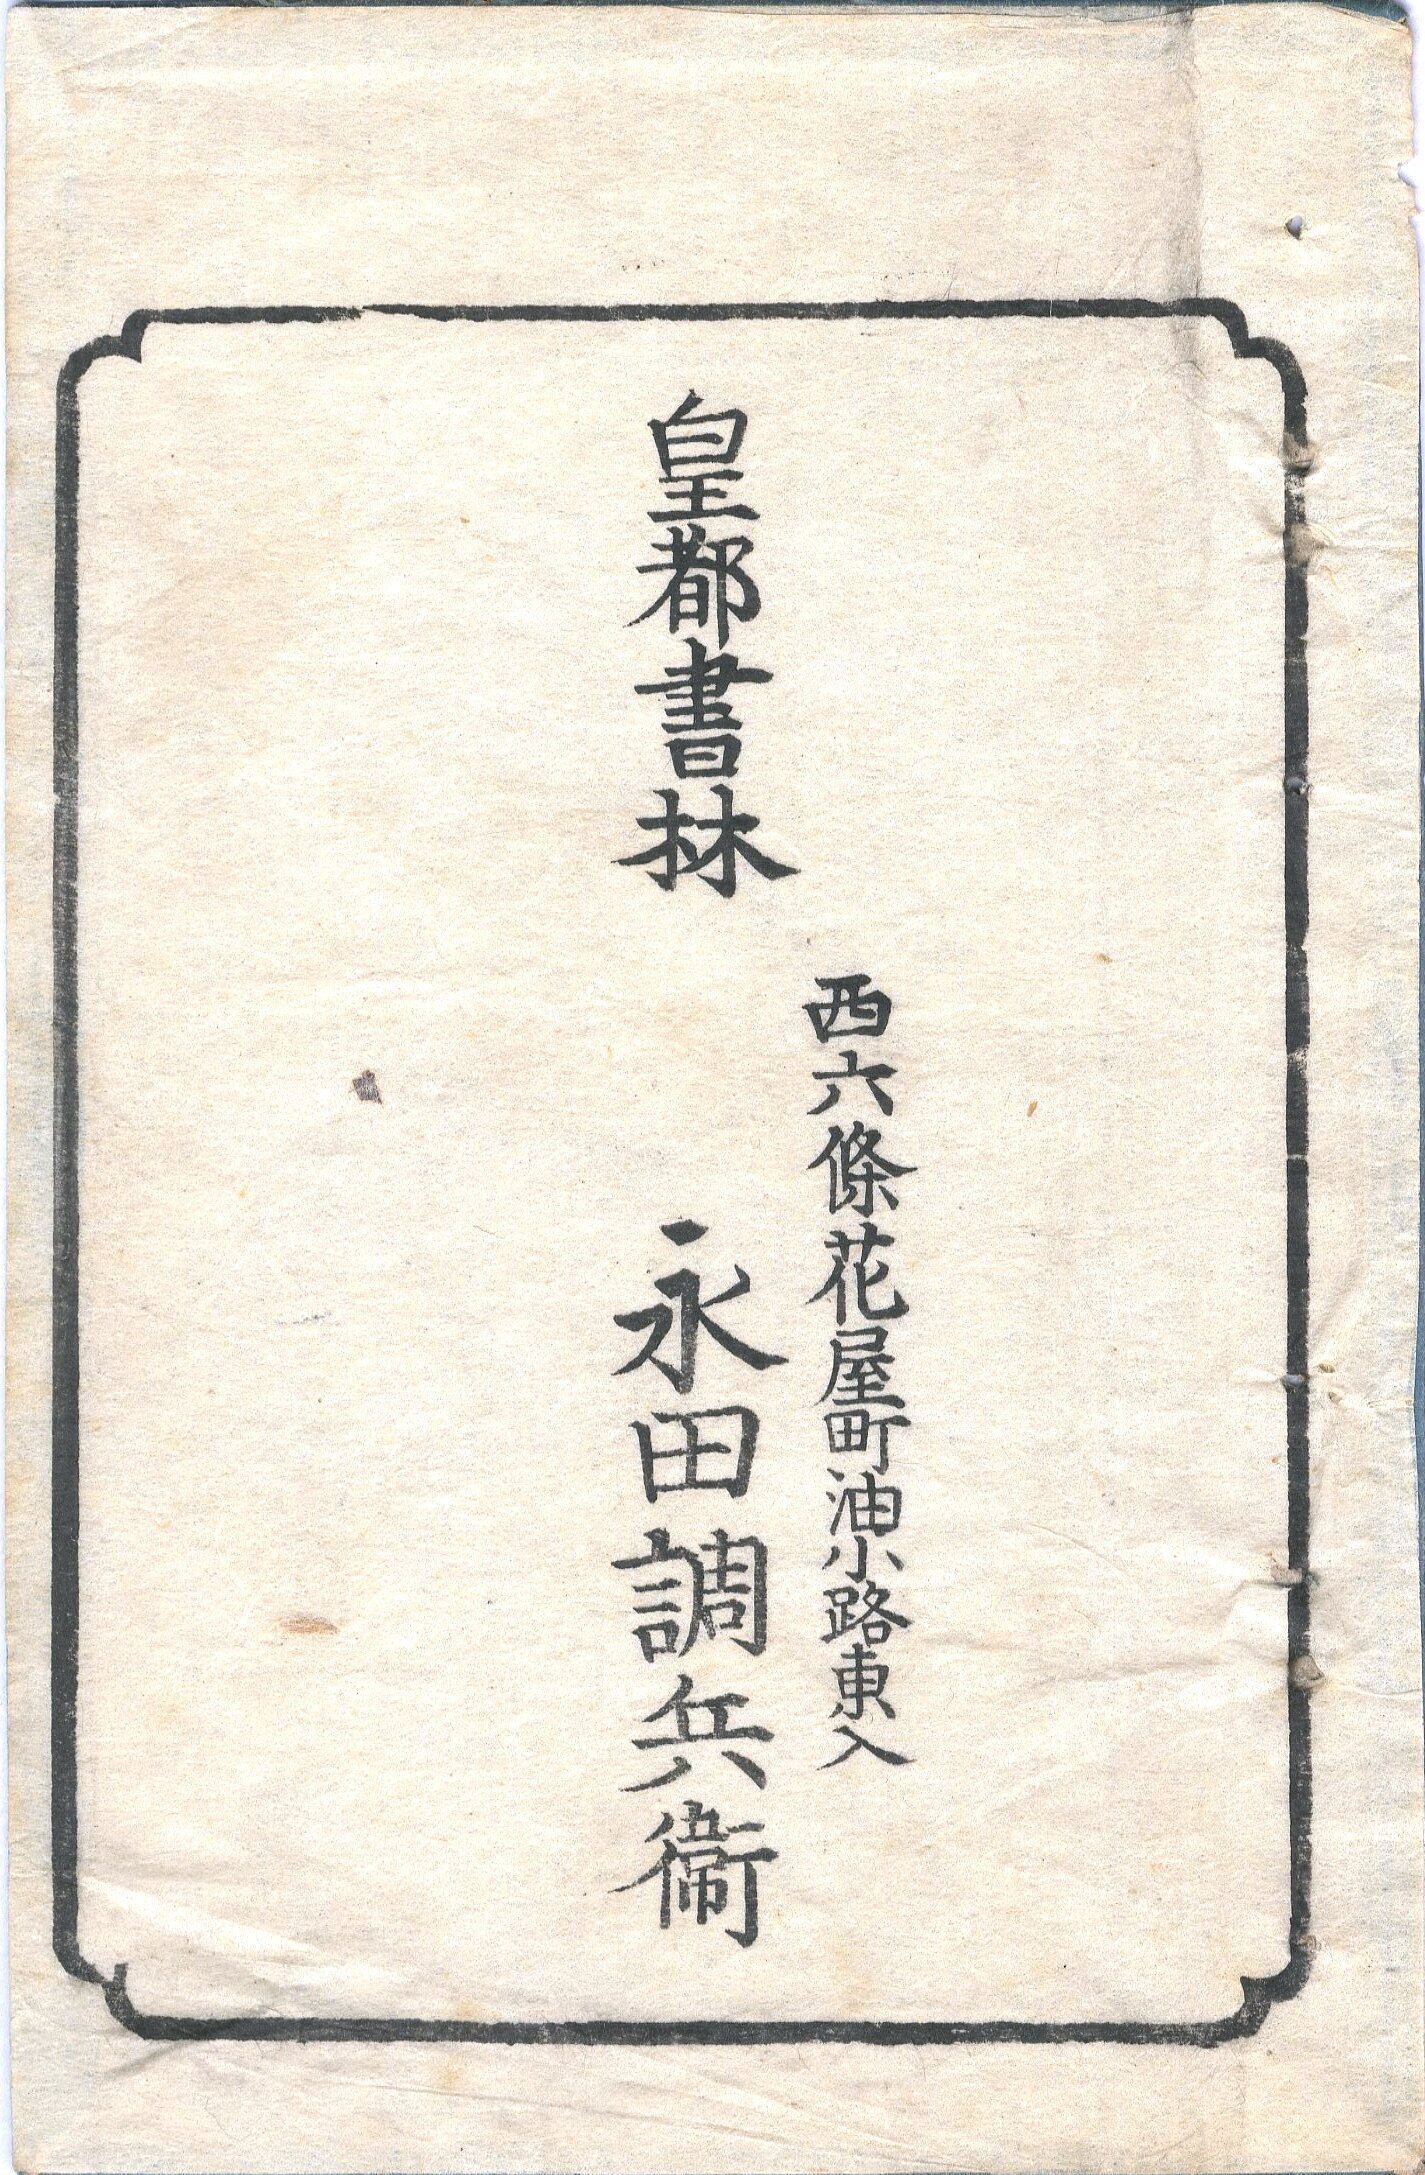 西六條花屋町油小路東入
皇都書林
永田調兵衞